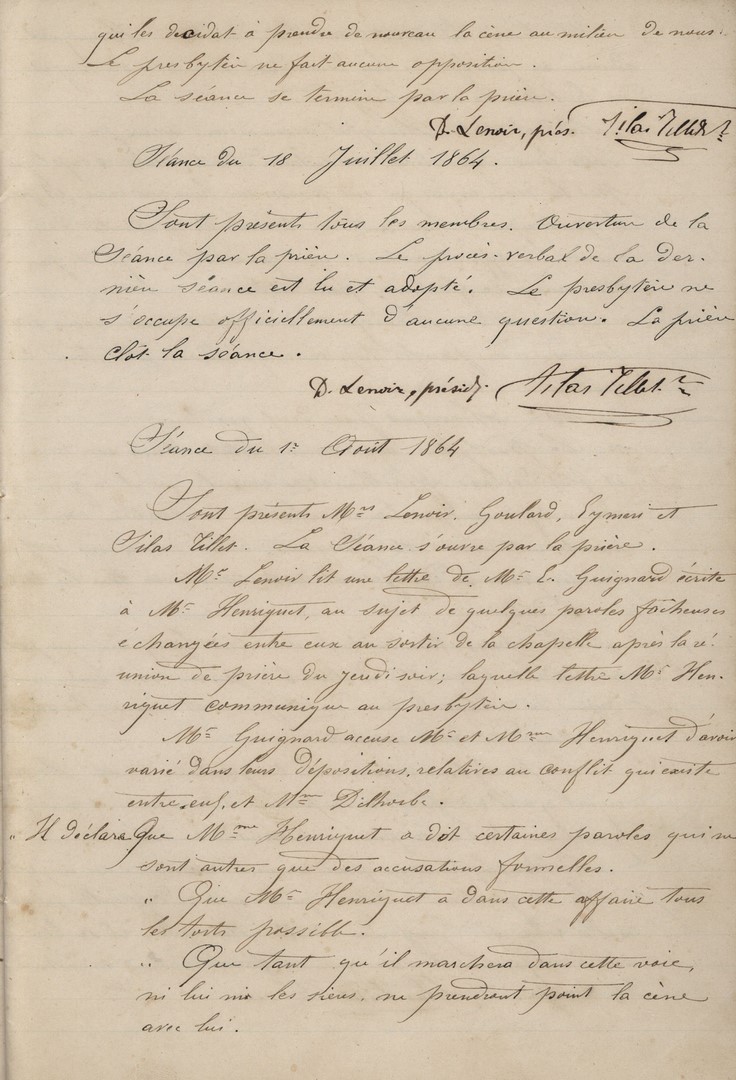 qui les décidat à prendre de nouveau la cène au milieu de nous.
Le presbytère ne fait aucune opposition.
La séance se termine par la prière.
D. Lenoir, prés. Silas Tillet
Séance du 18 Juillet 1864.
Sont présents tous les membres. Ouverture de la
séance par la prière. Le procès-verbal de la der-
nière séance est lu et adopté. Le presbytère ne
s'occupe officiellement d'aucune question. La prière
clôt la séance.
D. Lenoir, présid. Silas Tillet
Séance du 1er Août 1864
Sont présents Mrs Lenoir, Goulard, Eymeri et
Silas Tillet. La Séance s'ouvre par la prière.
Mr Lenoir lit une lettre de Mr E. Guignard écrite
à Mr Henriquet, au sujet de quelques paroles fâcheuses
échangées entre eux au sortir de la chapelle après la ré-
union de prière du jeudi soir; laquelle lettre Mr Hen-
riquet communique au presbytère.
Mr Guignard accuse Mr et Mme Henriquet d'avoir
varié dans leurs dépositions, relatives au conflit qui existe
entre eux, et Mme
" Il déclara Que Mme Henriquet a dit certaines paroles qui ne
sont autres que des accusations formelles.
" Que Mr Henriquet a dans cette affaire tous
les torts possible.
" Que tant qu'il marchera dans cette voie,
ni lui ni les siens, ne prendront point la cène
avec lui.